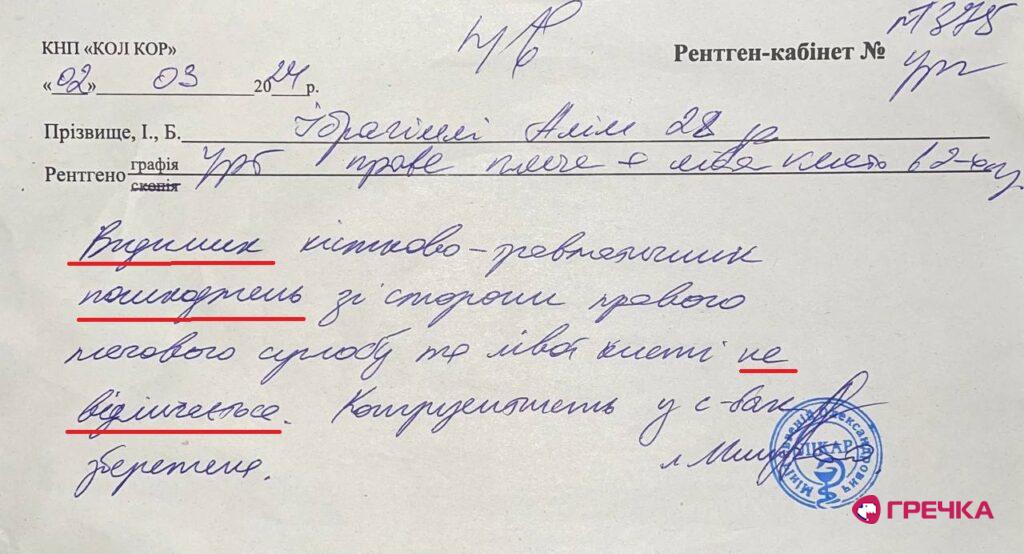 КНП «КОЛ КОР»
Рентген-кабінет №
«02» 03 2024 р.
Прізвище, І., Б. Ібрагімлі Алім 28
Рентгено графія
скопія
праве плече + ліва кисть в 2-ох
Видимих кістково-травматичних
пошкоджень зі сторони правого
плечового суглобу та лівої кисті не
відмічається. Конгруентність у с-вах
збережена.
ЛІКАР
ГРЕЧКА